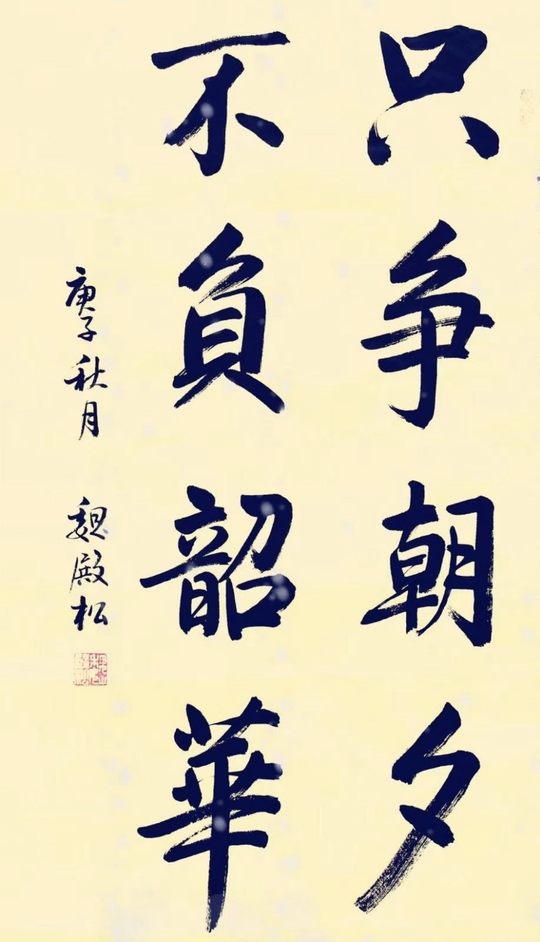 只争朝夕
不負韶華
庚子秋月 魏殿松